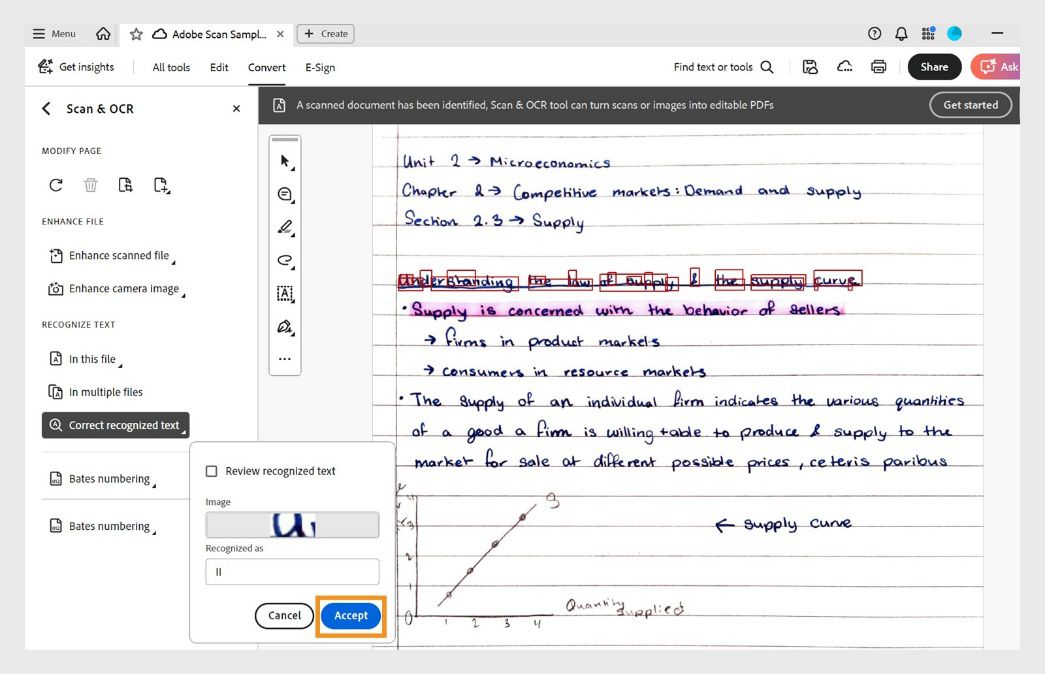 Menu
Adobe Scan Sampl...
+ Create
Get insights
All tools
Edit
Convert
E-Sign
Find text or tools
Share
Ask
Scan & OCR
A scanned document has been identified, Scan & OCR tool can turn scans or images into editable PDFs
Get started
MODIFY PAGE
ENHANCE FILE
Enhance scanned file
Enhance camera image
RECOGNIZE TEXT
In this file
In multiple files
Correct recognized text
Bates numbering
Bates numbering
Review recognized text
Image
u
Recognized as
II
Cancel
Accept
Unit 2 → Microeconomics
Chapter 2 → Competitive markets: Demand and supply
Section 2.3 → Supply
Understanding the law of supply & the supply curve
• Supply is concerned with the behavior of sellers
→ firms in product markets
→ consumers in resource markets
• The supply of an individual firm indicates the various quantities
of a good a firm is willing + able to produce & supply to the
market for sale at different possible prices, ceteris paribus
S
4
3
← supply curve
2
1
0
1 2 3 4
Quantity Supplied